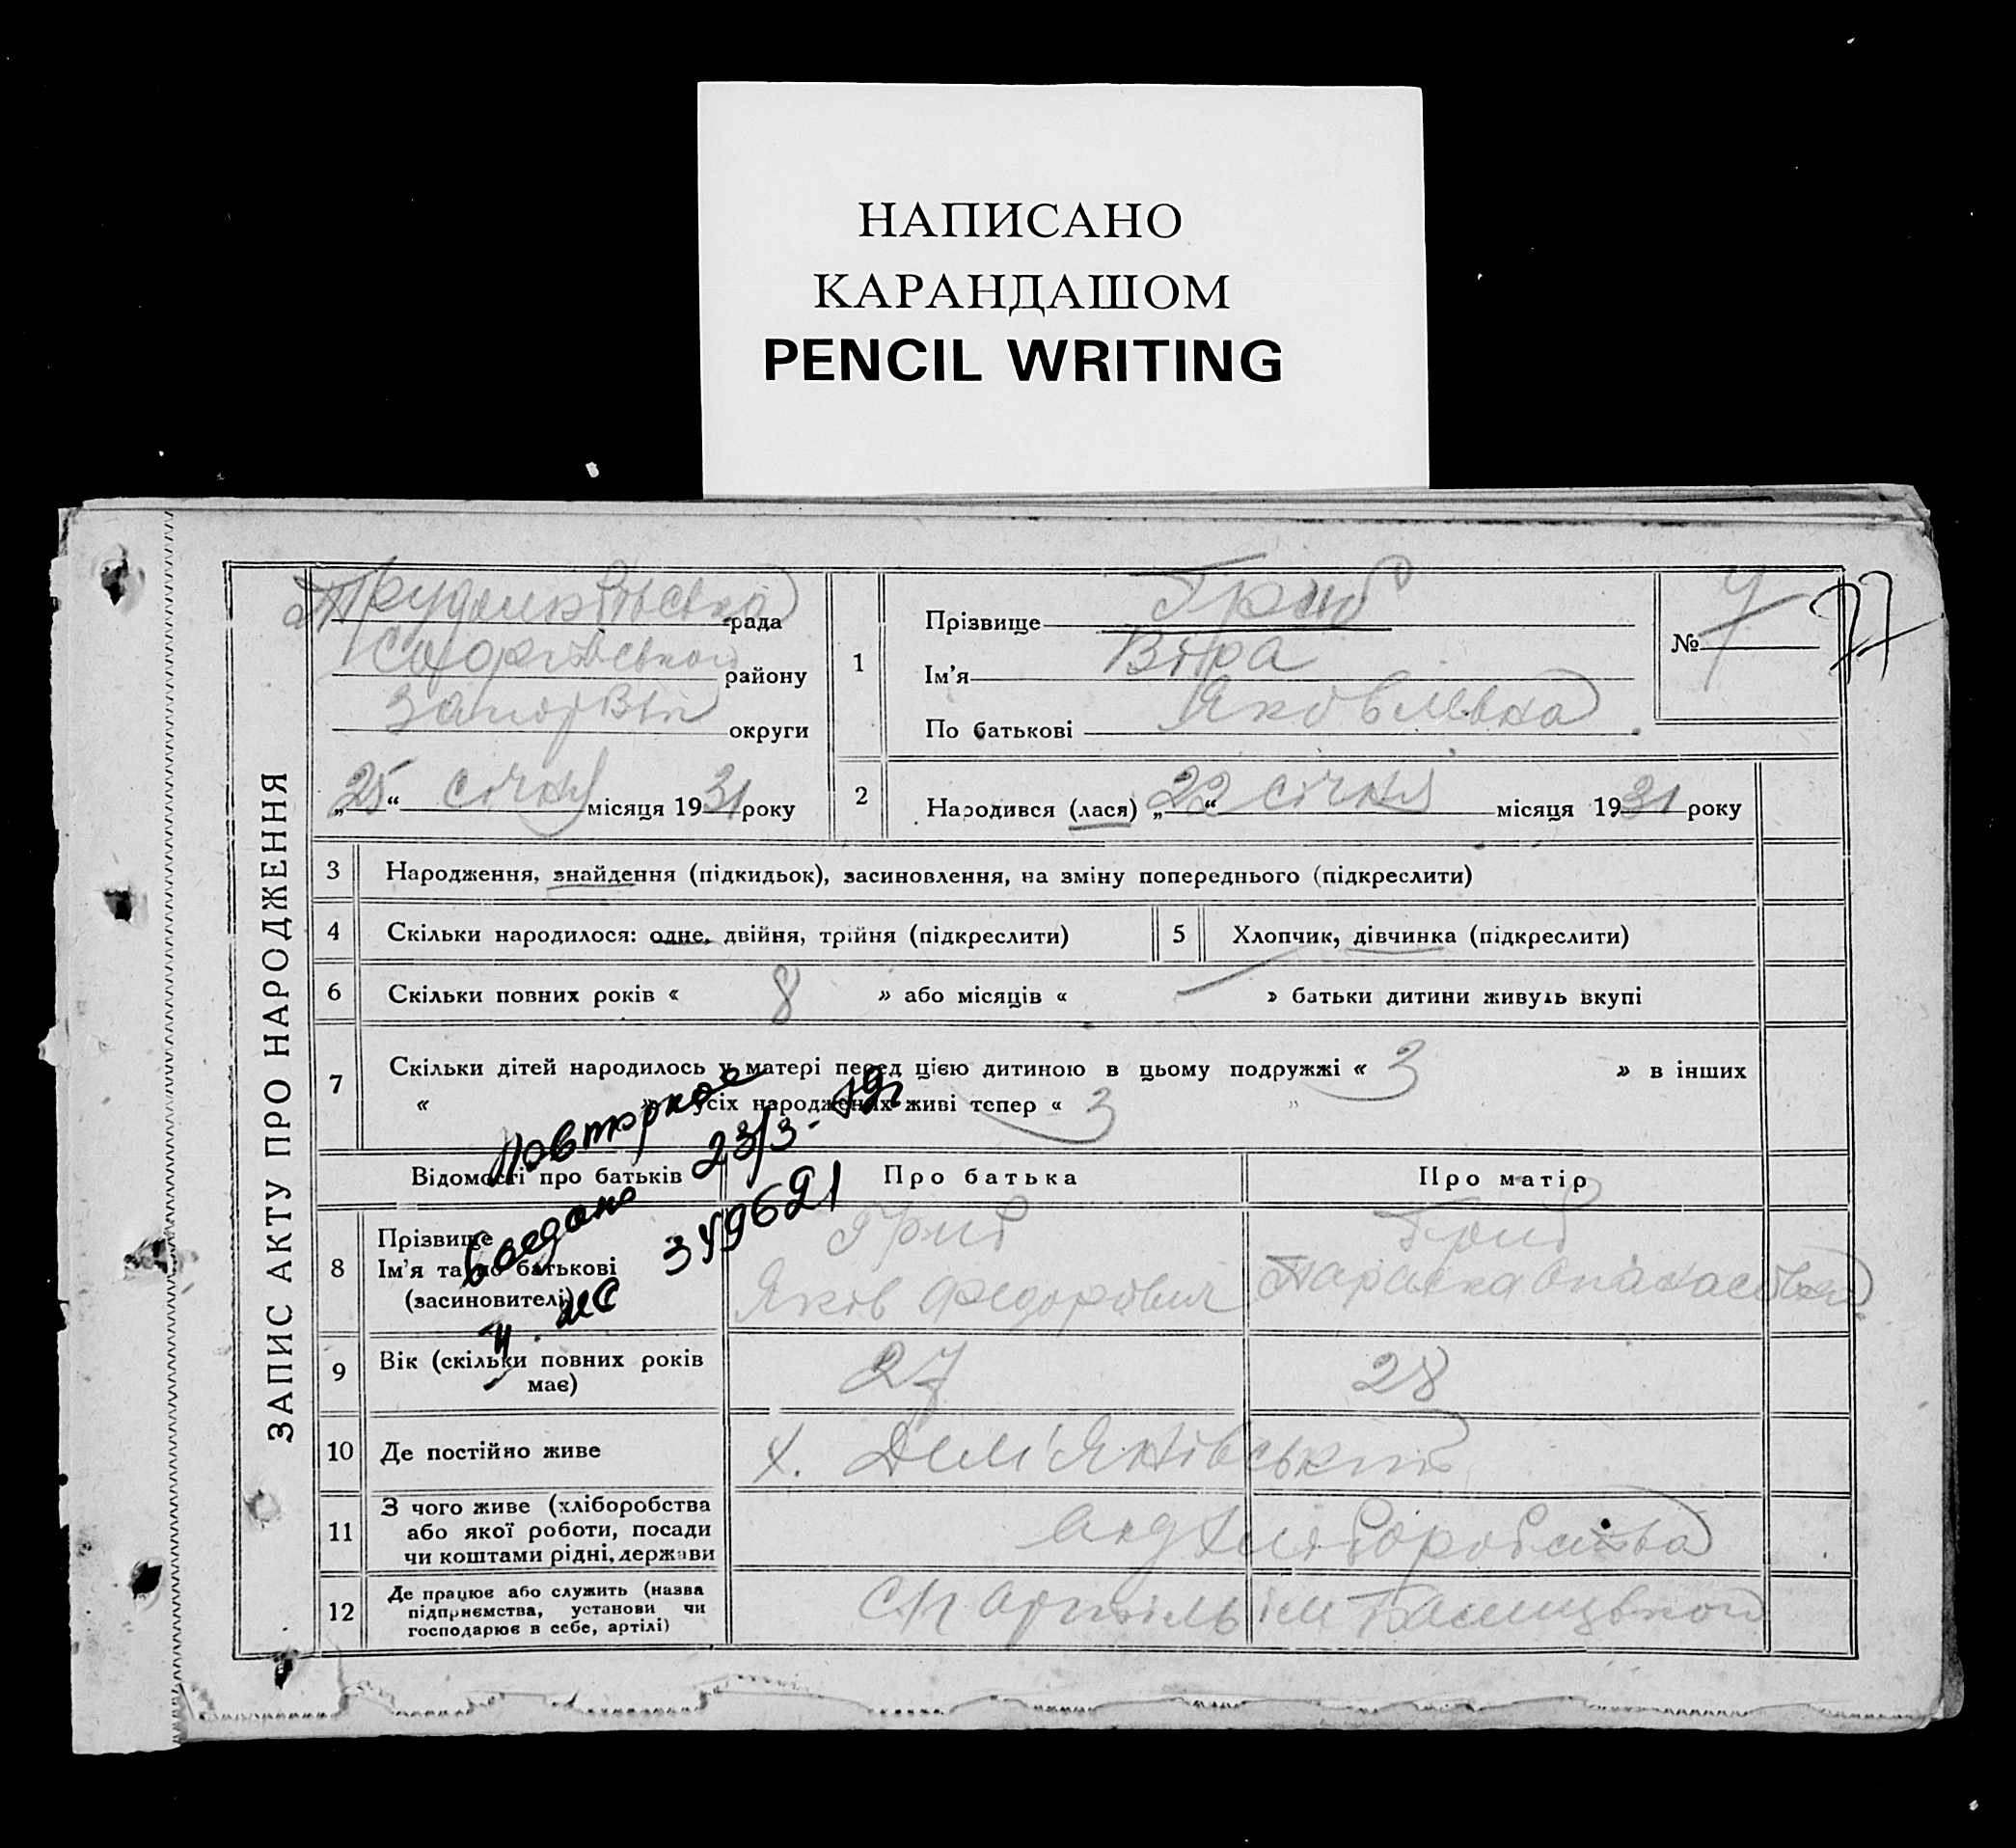 НАПИСАНО
КАРАНДАШОМ
PENCIL WRITING
ЗАПИС АКТУ ПРО НАРОДЖЕННЯ
рада
району
округи
„25“ січня місяця 1931 року
1
Прізвище Гриб
Ім'я Віра
По батькові Яковлівна
№ 4
77
2 Народився (лася) „22“ січня місяця 1931 року
3 Народження, знайдення (підкидьок), засиновлення, на зміну попереднього (підкреслити)
4 Скільки народилося: одне, двійня, трійня (підкреслити) 5 Хлопчик, дівчинка (підкреслити)
6 Скільки повних років « 8 » або місяців « — » батьки дитини живуть вкупі
7 Скільки дітей народилось у матері перед цією дитиною в цьому подружжі « 3 » в інших
« » усіх народжених живі тепер « 3 »
Повторное
23/3-
Відомості про батьків Про батька Про матір
8 Прізвище Гриб Гриб
Ім'я та по батькові Яків Федорович Параска Опанасовна
(засновителі)
9 Вік (скільки повних років має) 27 28
10 Де постійно живе х. Дем'янівський
11 З чого живе (хліборобства
або якої роботи, посади
чи коштами рідні, держави хліборобства
12 Де працює або служить (назва
підприємства, установи чи
господарює в себе, артілі) артіль ім